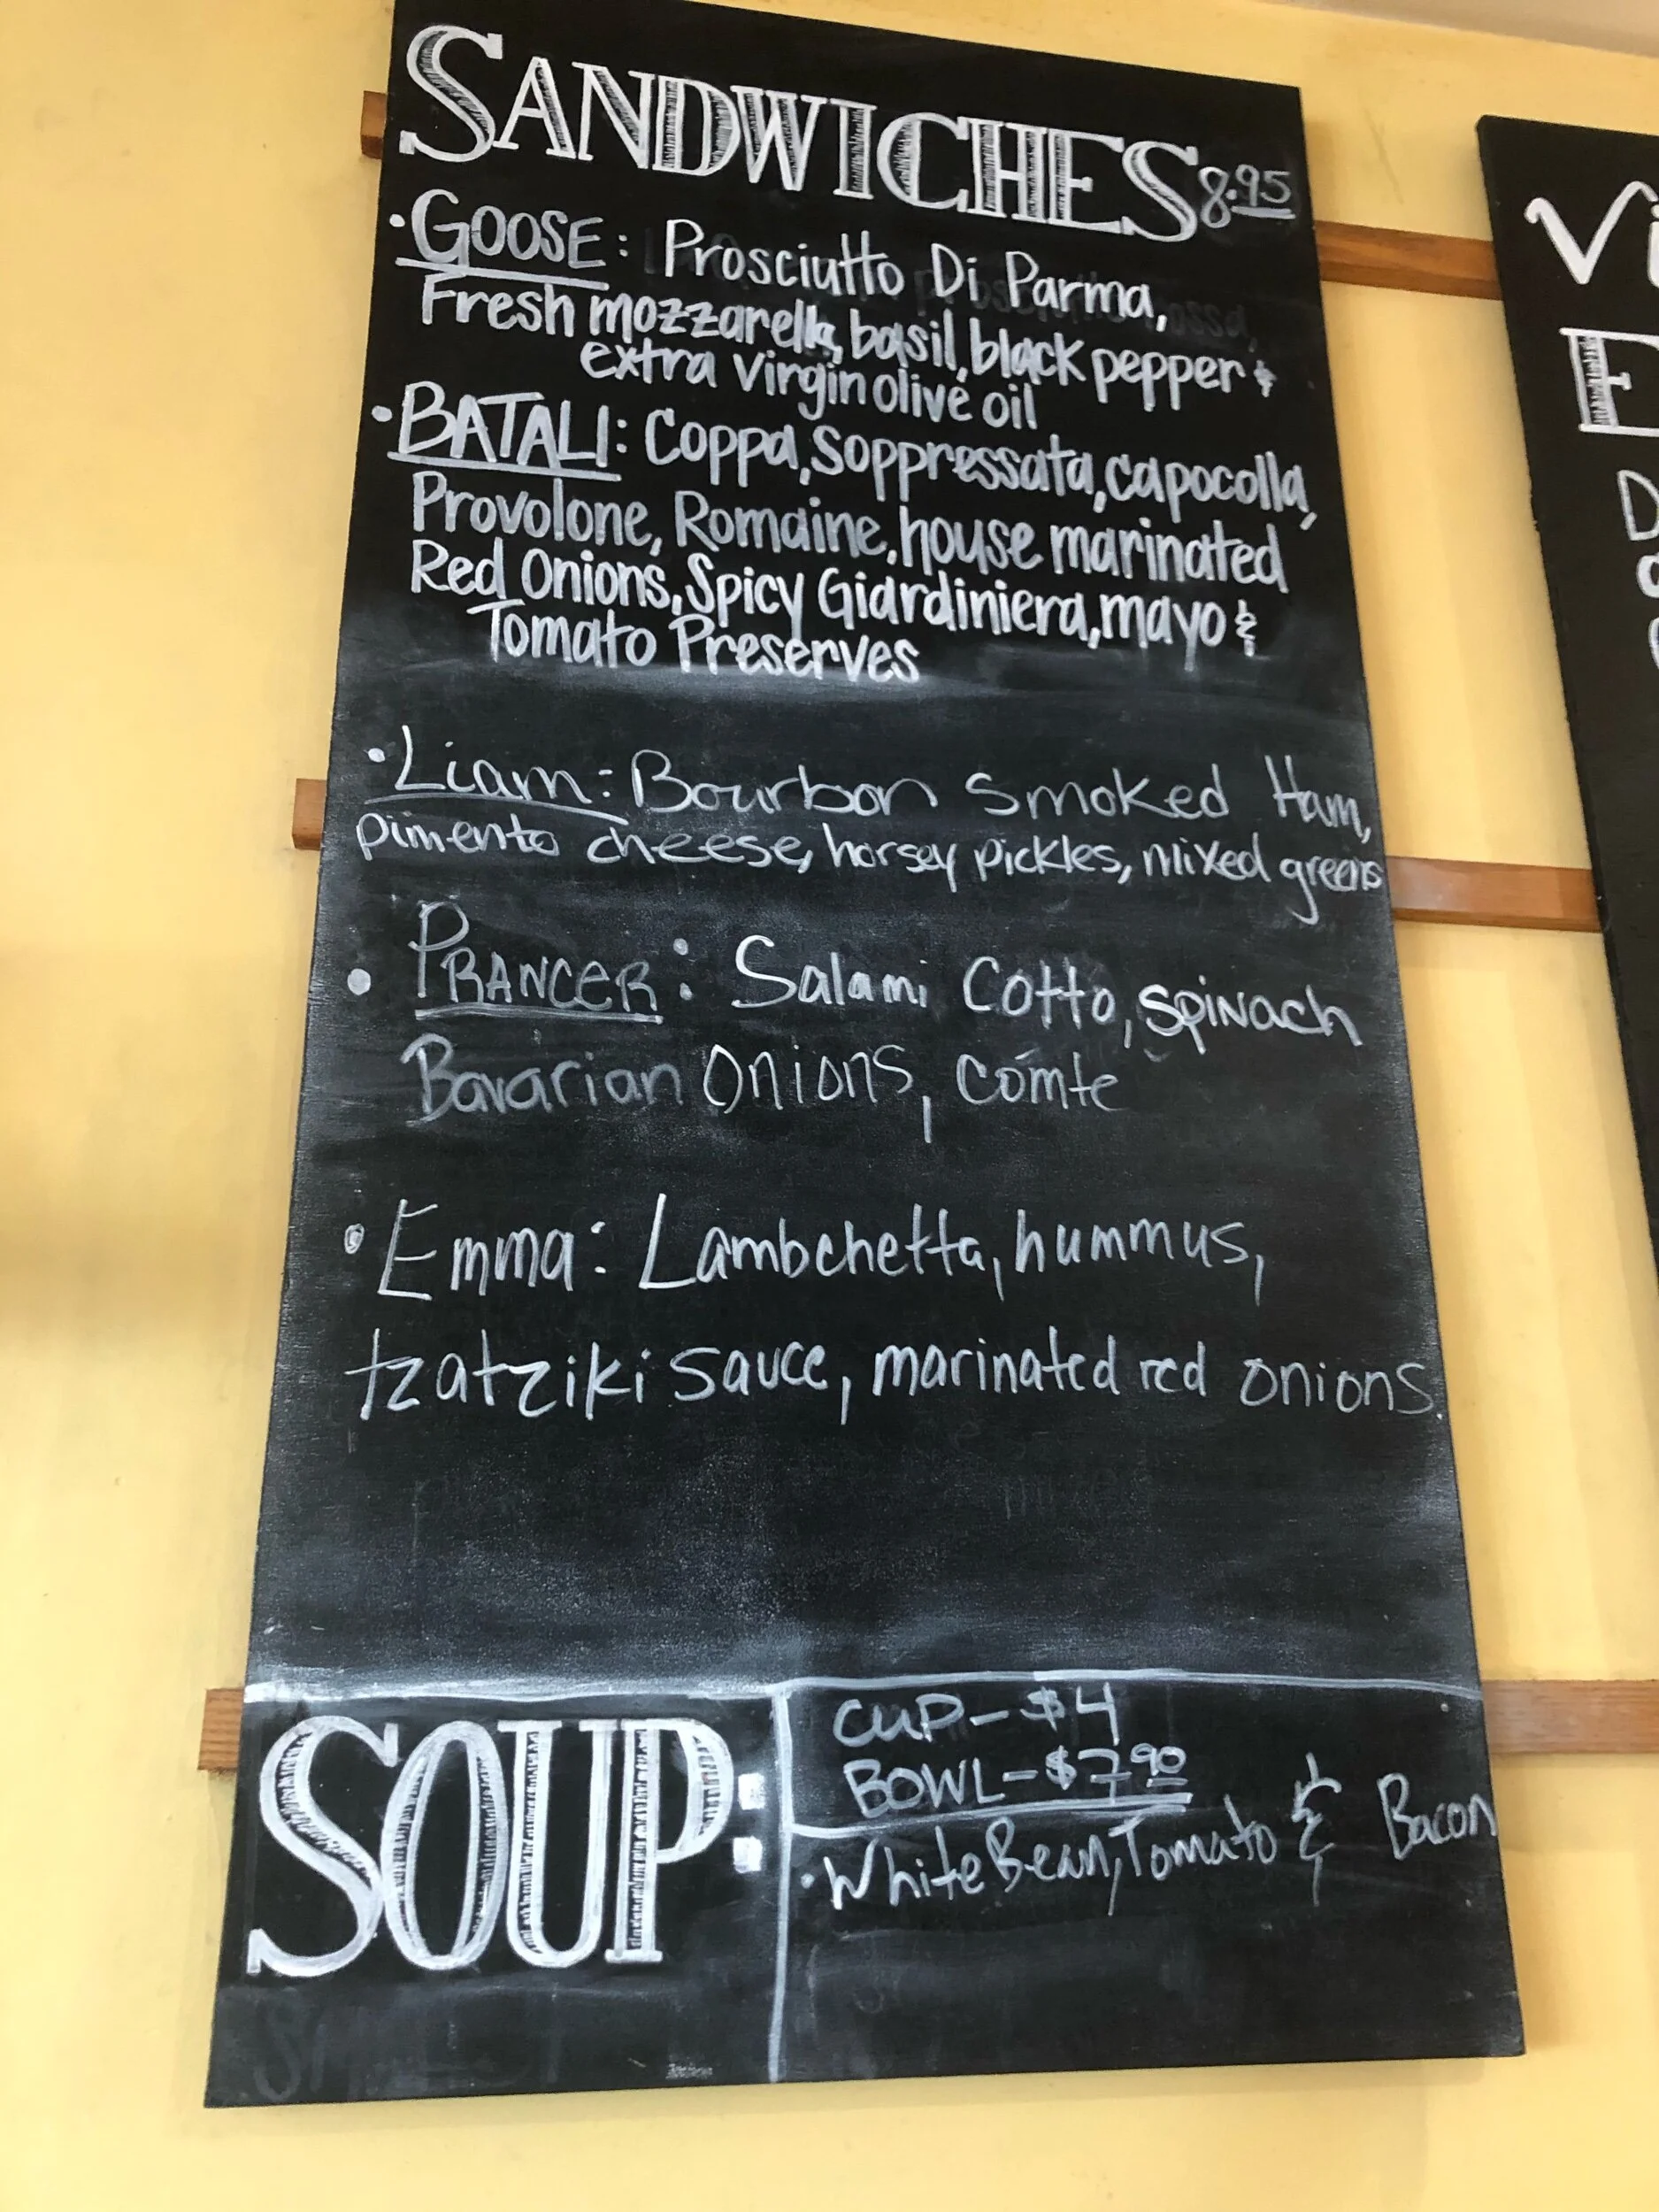 SANDWICHES 8.95
• GOOSE: Prosciutto Di Parma,
Fresh mozzarella, basil, black pepper &
extra virgin olive oil
• BATALI: Coppa, Soppressata, capocolla,
Provolone, Romaine, house marinated
Red Onions, Spicy Giardiniera, mayo &
Tomato Preserves
• Liam: Bourbon Smoked Ham,
pimento cheese, horsey pickles, mixed greens
• PRANCER: Salami Cotto, spinach
Bavarian Onions, Comte
• Emma: Lambchetta, hummus,
tzatziki sauce, marinated red onions
SOUP:
CUP - $4
BOWL - $7.90
• White Bean, Tomato & Bacon
Vi
E
D